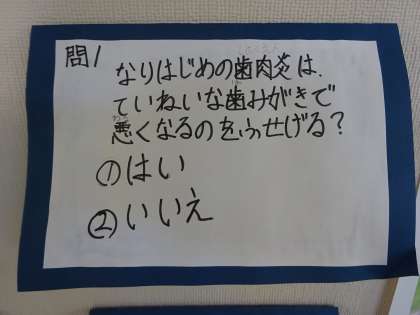 問1
なりはじめの歯肉炎は、
ていねいな歯みがきで
悪くなるのをふせげる?
①はい
②いいえ